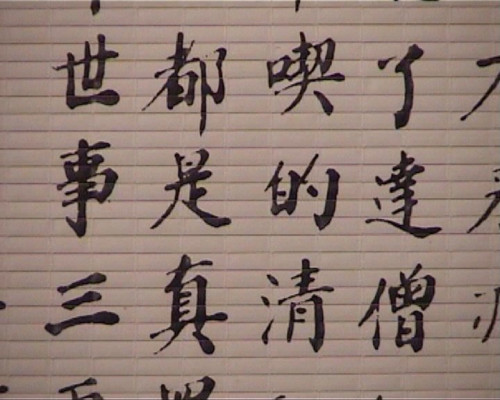 了達僧
喫的清
都是真
世事三